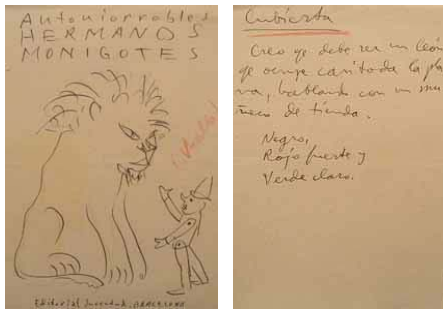 HERMANOS
MONIGOTES
Editorial Juventud, BARCELONA
Cubierta
Creo qe debe ser un león
qe ocupe casi toda la pla
na, hablando con un mu
ñeco de tienda.
Negro,
Rojo fuerte y
Verde claro.